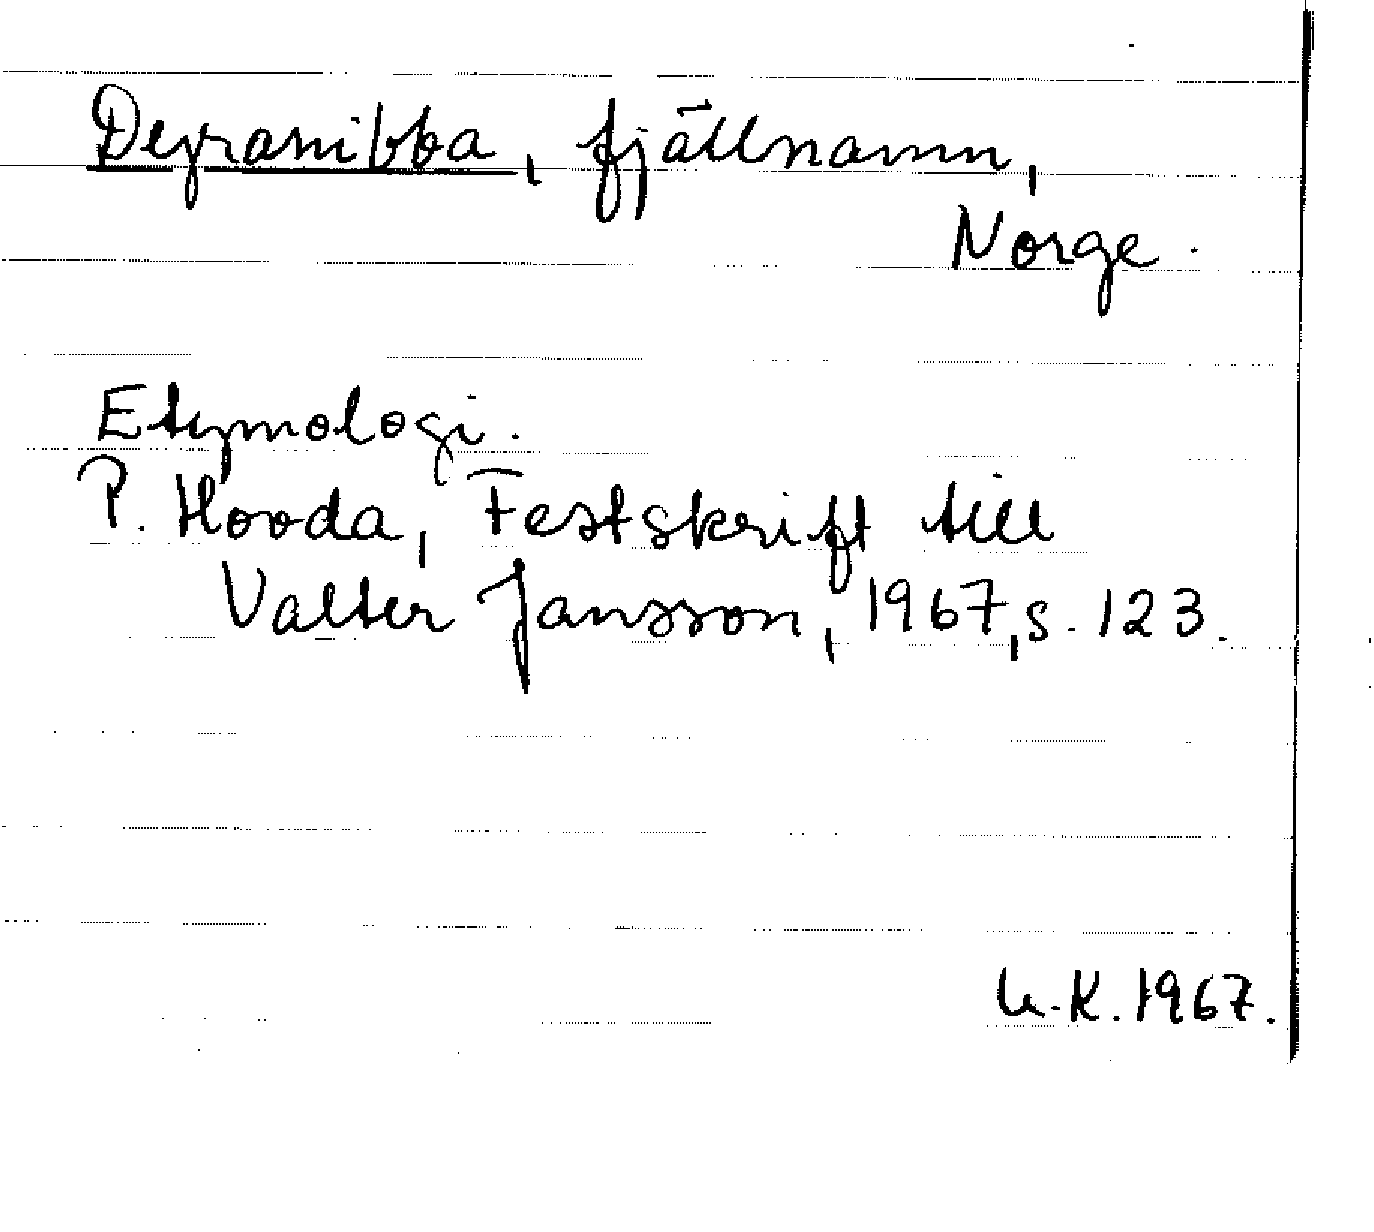 Deyranibba, fjällnamn,
Norge.
Etymologi.
P. Hovda, Festskrift till
Valter Jansson, 1967, s. 123.
U.K. 1967.